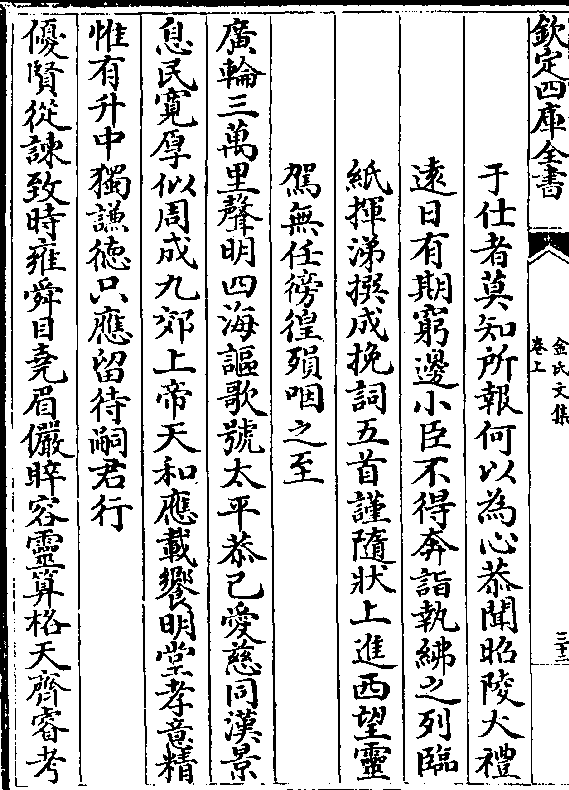 欽定四庫全書
金氏文集
卷上
三十二
于仕者莫知所報何以為心恭聞昭陵大禮
逺日有期窮邊小臣不得奔詣執紼之列臨
紙揮涕撰成挽詞五首謹隨狀上進西望靈
駕無任徬徨殞咽之至
廣輪三萬里聲明四海謳歌號太平恭己愛慈同漢景
息民寛厚似周成九郊上帝天和應載饗明堂孝意精
惟有升中獨謙徳只應留待嗣君行
優賢從諫致時雍舜目堯眉儼睟容靈算格天齊睿考